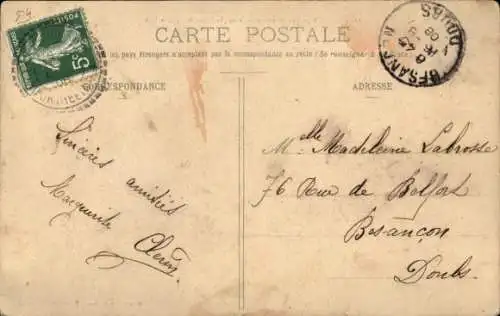 54
CARTE POSTALE
pays étrangers n'acceptent pas la correspondance au recto (Se renseigner
CORRESPONDANCE
ADRESSE
BESANÇON
DOUBS
5
Sincères amitiés
Marguerite
Melle Madeleine Labrosse
76 Rue de Belfort
Besançon
Doubs